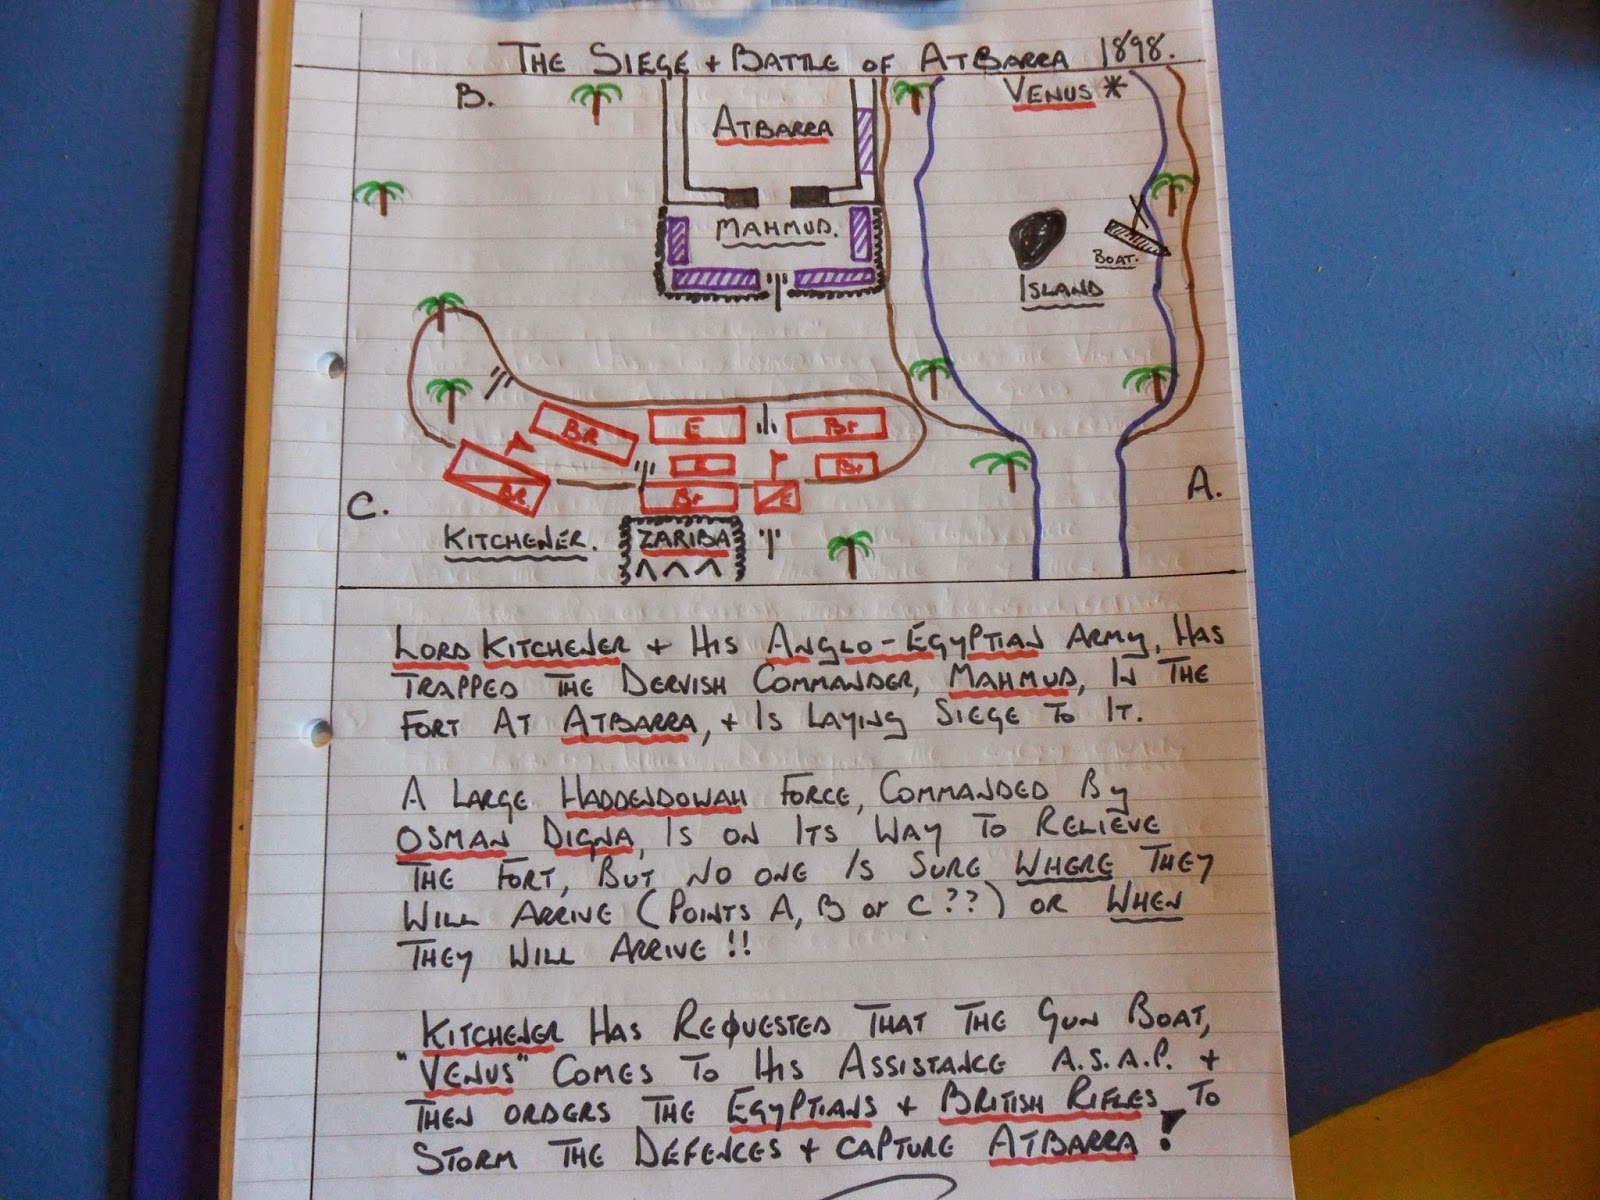 THE SIEGE + BATTLE OF ATBARRA 1898.
B.
ATBARRA
VENUS *
MAHMUD.
BOAT.
ISLAND
BR
E
Br
E
Br
BR
Br
E
A.
C.
KITCHENER.
ZARIBA
LORD KITCHENER + HIS ANGLO-EGYPTIAN ARMY, HAS
TRAPPED THE DERVISH COMMANDER, MAHMUD, IN THE
FORT AT ATBARRA, + IS LAYING SIEGE TO IT.
A LARGE HADDENDOWAH FORCE, COMMANDED By
OSMAN DIGNA, IS ON ITS WAY TO RELIEVE
THE FORT, BUT NO ONE IS SURE WHERE THEY
WILL ARRIVE (POINTS A, B or C??) OR WHEN
THEY WILL ARRIVE!!
KITCHENER HAS REQUESTED THAT THE GUN BOAT,
"VENUS" COMES TO HIS ASSISTANCE A.S.A.P. +
THEN ORDERS THE EGYPTIANS + BRITISH RIFLES TO
STORM THE DEFENCES + CAPTURE ATBARRA!